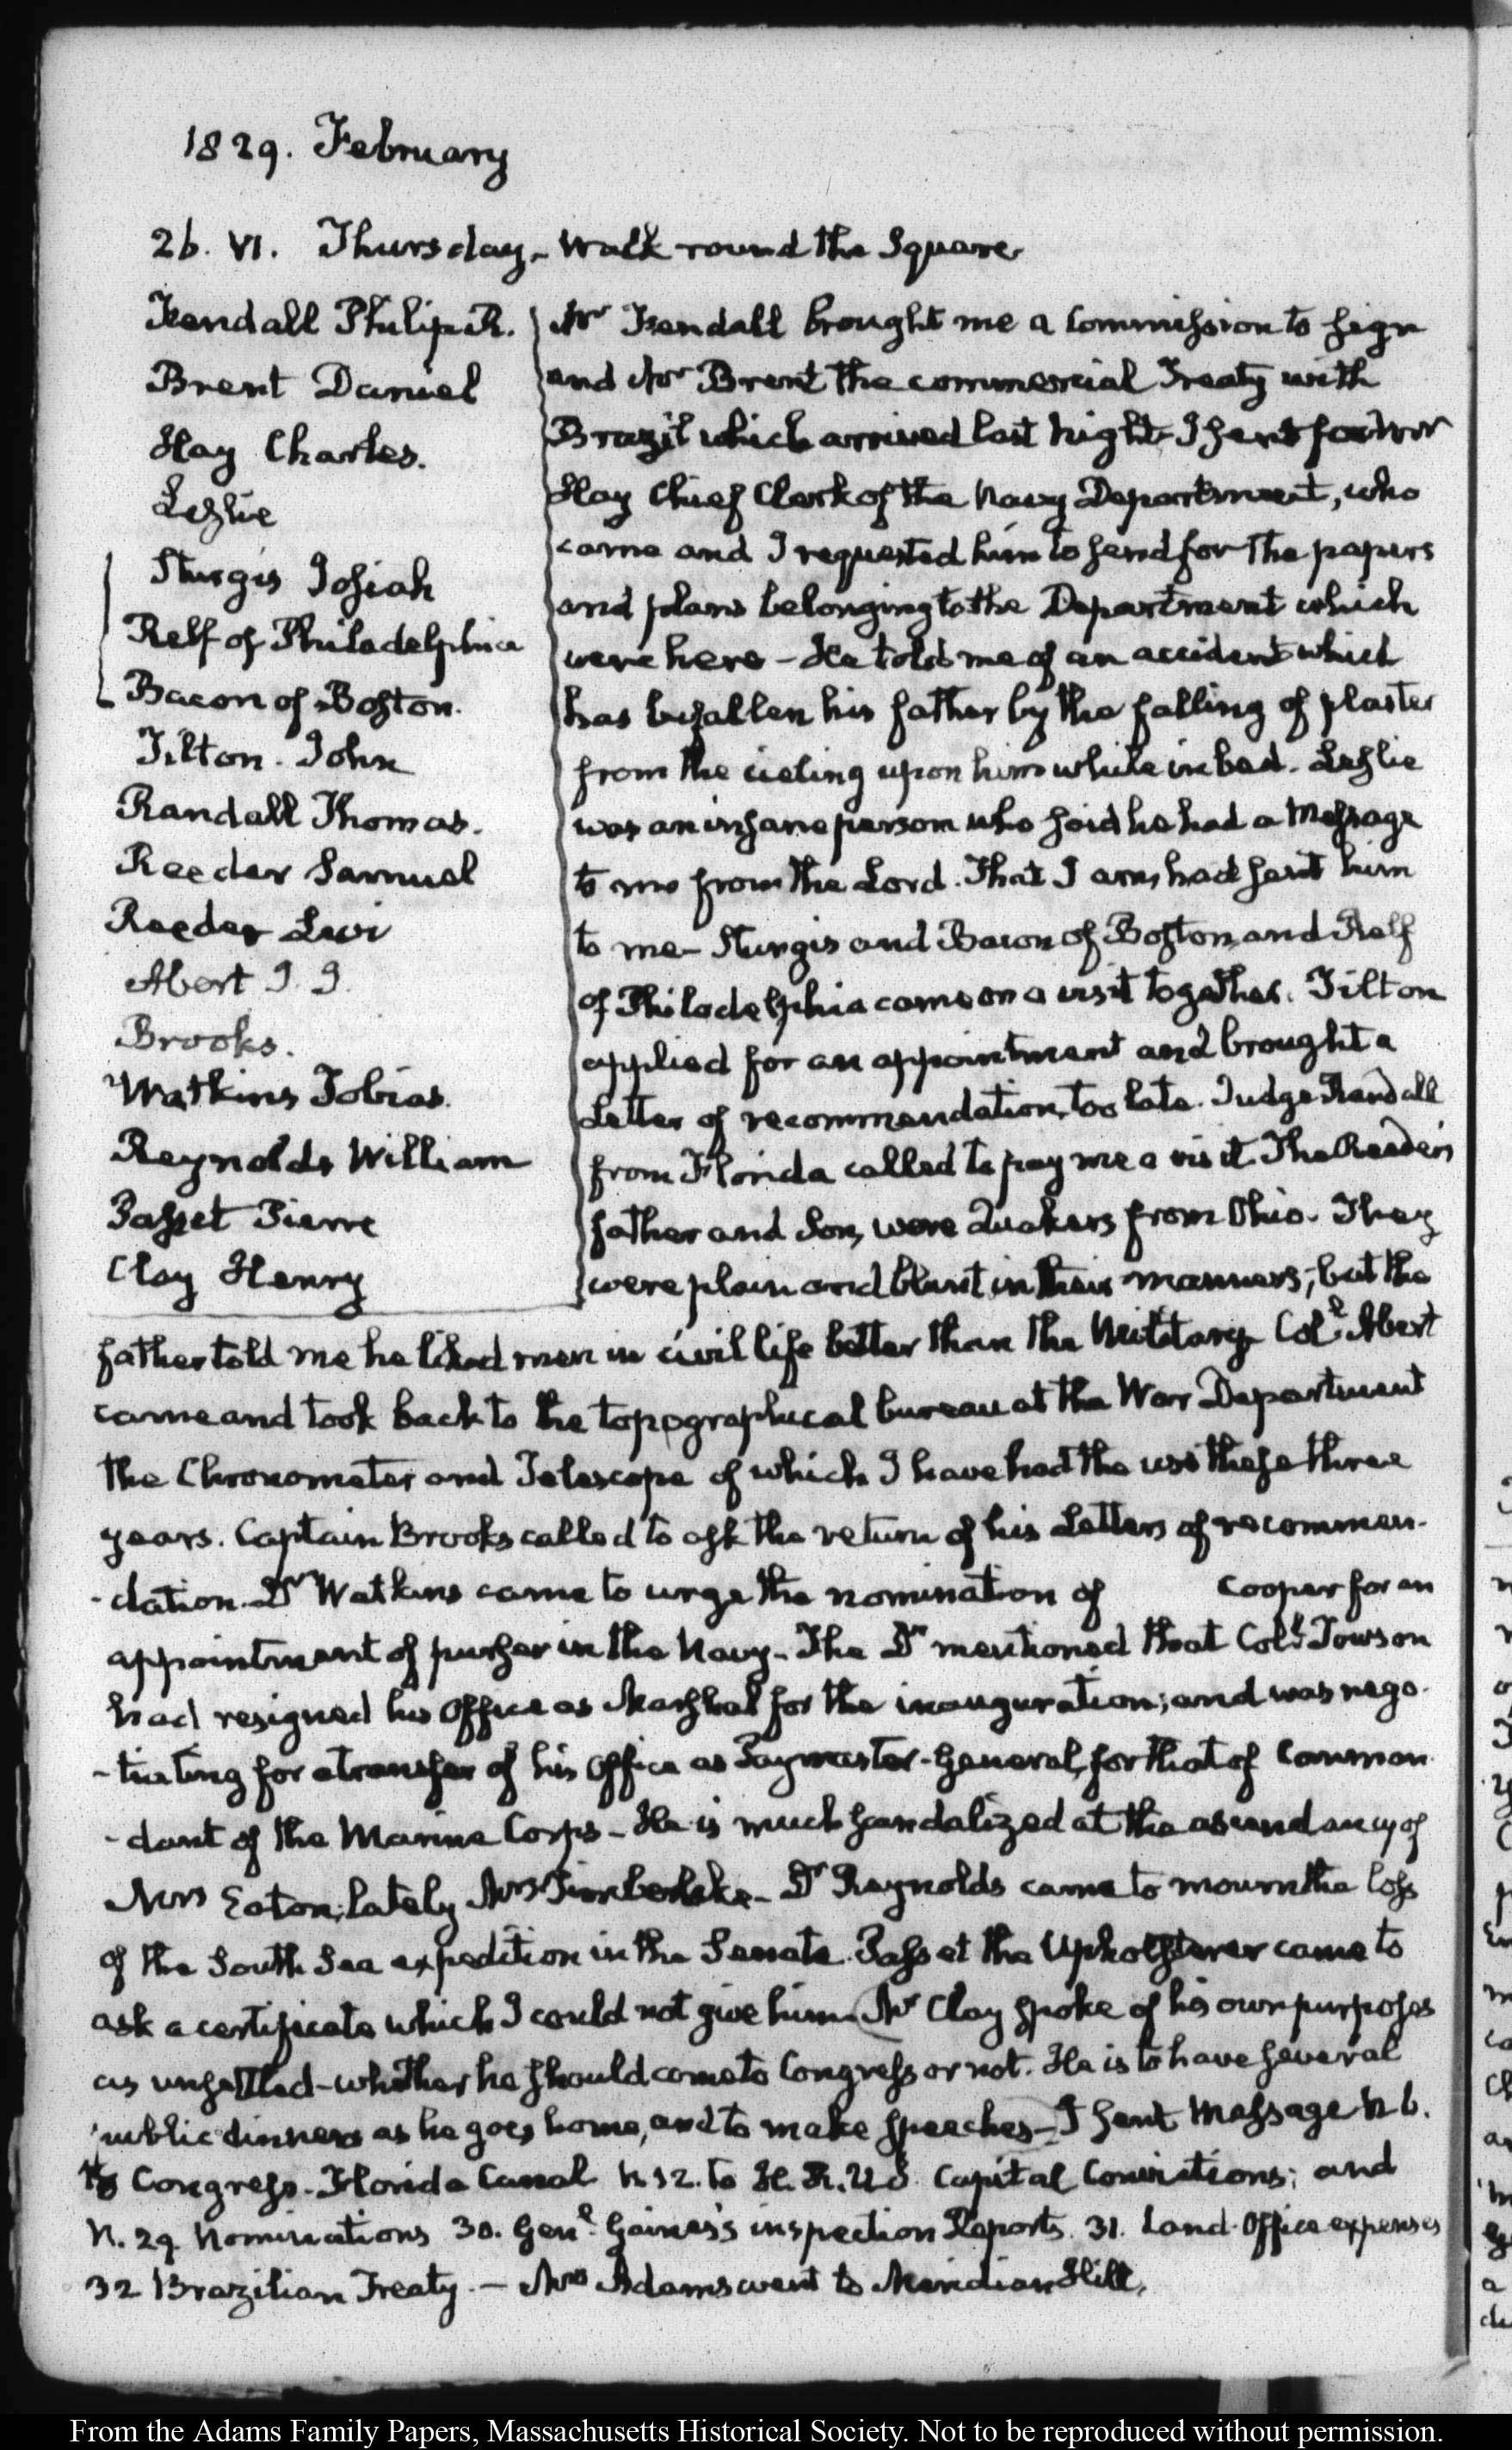 1829. February
26. VI. Thursday. Walk round the Square
Kendall Philip R.
Brent Daniel
Hay Charles.
Leslie
Sturgis Josiah
Relf of Philadelphia
Bacon of Boston.
Tilton. John
Randall Thomas.
Reeder Samuel
Reeder Levi
Abert J. J.
Brooks.
Watkins Tobias.
Reynolds William
Passet Pierre
Clay Henry
Mr Kendall brought me a Commission to sign
and Mr Brent the commercial Treaty with
Brazil which arrived last night. I sent for Mr
Hay Chief Clerk of the Navy Department, who
came and I requested him to send for the papers
and plans belonging to the Department which
were here - He told me of an accident which
has befallen his father by the falling of plaster
from the cieling upon him while in bed. Leslie
was an insane person who said he had a Message
to me from the Lord. That I am, had sent him
to me - Sturgis and Bacon of Boston, and Relf
of Philadelphia came on a visit together. Tilton
applied for an appointment and brought a
Letter of recommendation, too late. Judge Randall
from Florida called to pay me a visit. The Reeder's
father and Son, were Quakers from Ohio. They
were plain and blunt in their manners; but the
father told me he liked men in civil life better than the Military. Coll. Abert
came and took back to the topographical bureau at the War Department
the Chronometer and Telescope of which I have had the use these three
years. Captain Brooks called to ask the return of his Letters of recommen-
-dation. Dr Watkins came to urge the nomination of Cooper for an
appointment of purser in the Navy - The Dr mentioned that Coll. Towson
had resigned his Office as Marshal for the inauguration; and was nego-
-tiating for a transfer of his Office as Paymaster-General, for that of Comman-
-dant of the Marine Corps - He is much scandalized at the ascendancy of
Mrs Eaton, lately Mrs Timberlake - Dr Reynolds came to mourn the loss
of the South Sea expedition in the Senate. Passet the Upholsterer came to
ask a certificate which I could not give him. Mr Clay spoke of his own purposes
as unsettled - whether he should come to Congress or not. He is to have several
public dinners as he goes home, and to make speeches - I sent Message N 6.
to Congress - Florida Canal N 12. to H. R. U S. Capital Convictions; and
N. 29. Nominations 30. Genl. Gaines's inspection Reports. 31. Land-Office expenses
32 Brazilian Treaty. - Mrs Adams went to Meridian Hill.
From the Adams Family Papers, Massachusetts Historical Society. Not to be reproduced without permission.